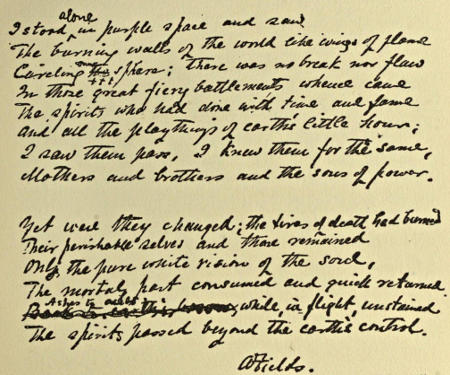 I stood alone in purple space and saw
The burning walls of the world like wings of flame
Circling the sphere; there was no break nor flaw
In those great fiery battlements whence came
The spirits who had done with time and fame
and all the playthings of earth's little hour;
I saw them pass, I knew them for the same,
Mothers and brothers and the sons of power.
Yet were they changed; the fires of death had burned
Their perishable selves and there remained
Only the pure white vision of the soul,
The mortal part consumed and quick returned
Ashes to ashes while, in flight, unstained
The spirits passed beyond the earth's control.
AFields.